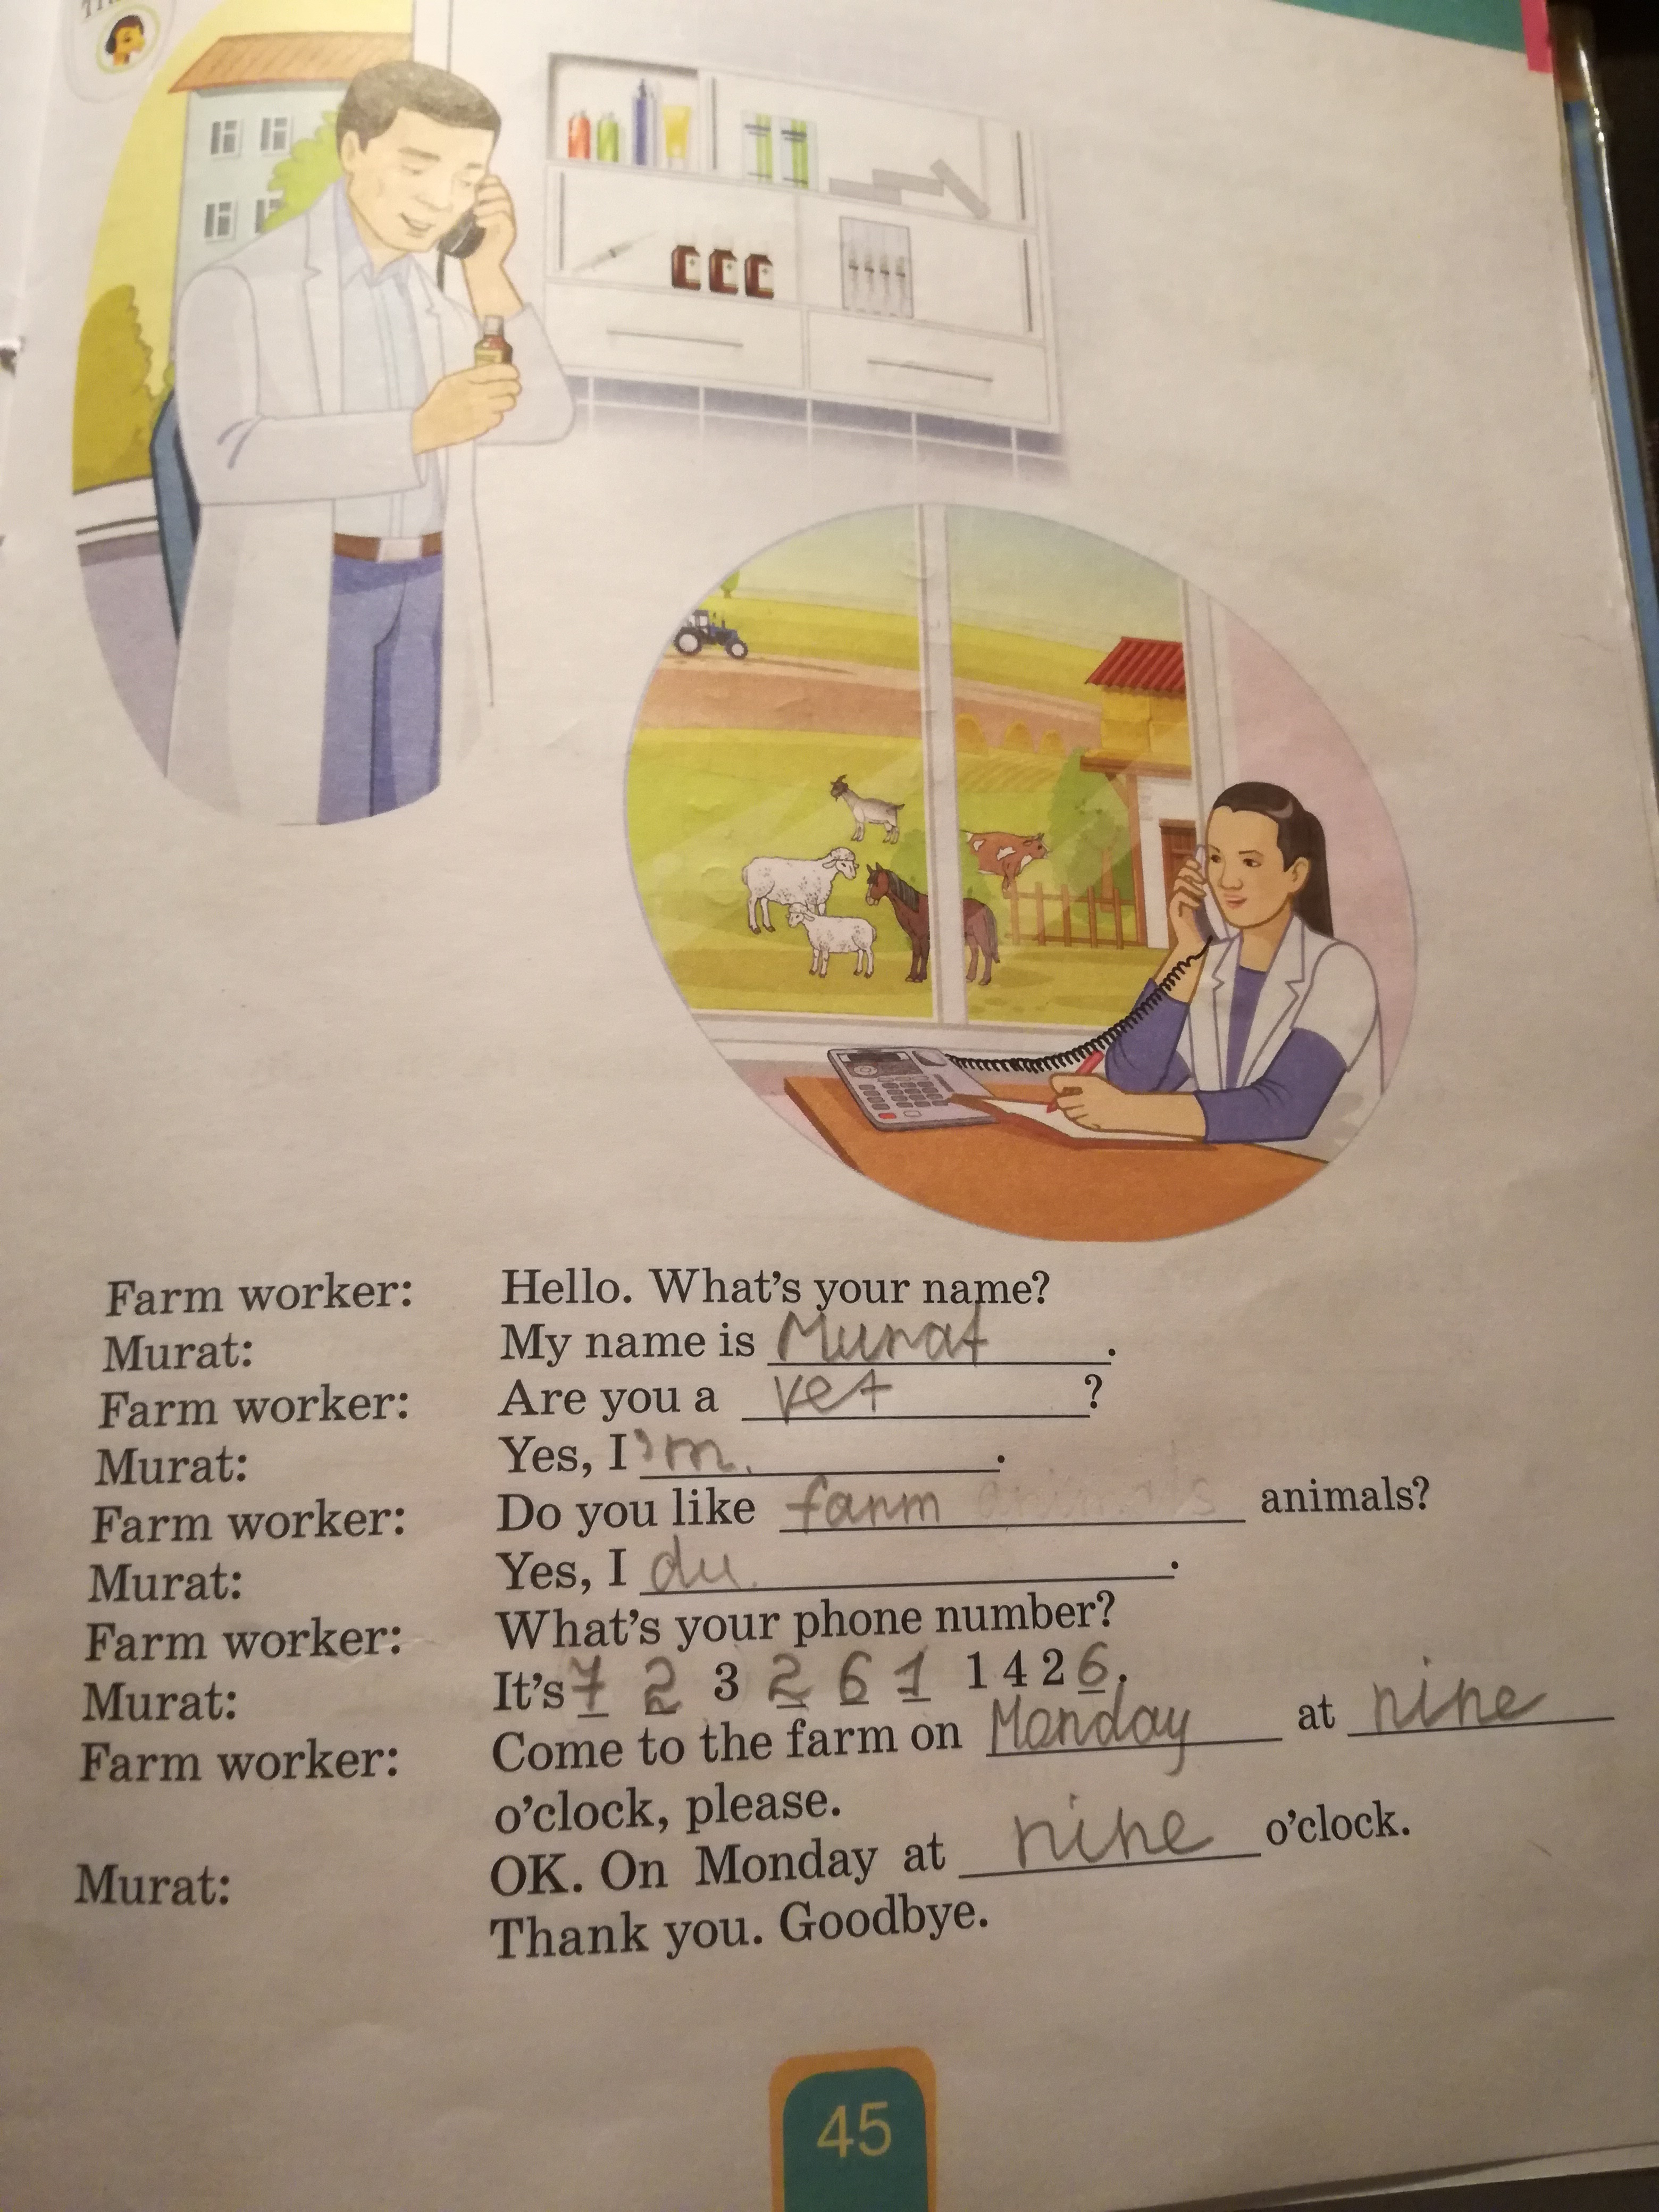 Farm worker: Hello. What's your name?
Murat: My name is Murat.
Farm worker: Are you a vet?
Murat: Yes, I'm.
Farm worker: Do you like farm animals animals?
Murat: Yes, I du.
Farm worker: What's your phone number?
Murat: It's 7 2 3 2 6 1 1 4 2 6.
Farm worker: Come to the farm on Monday at nine
o'clock, please.
Murat: OK. On Monday at nine o'clock.
Thank you. Goodbye.
45